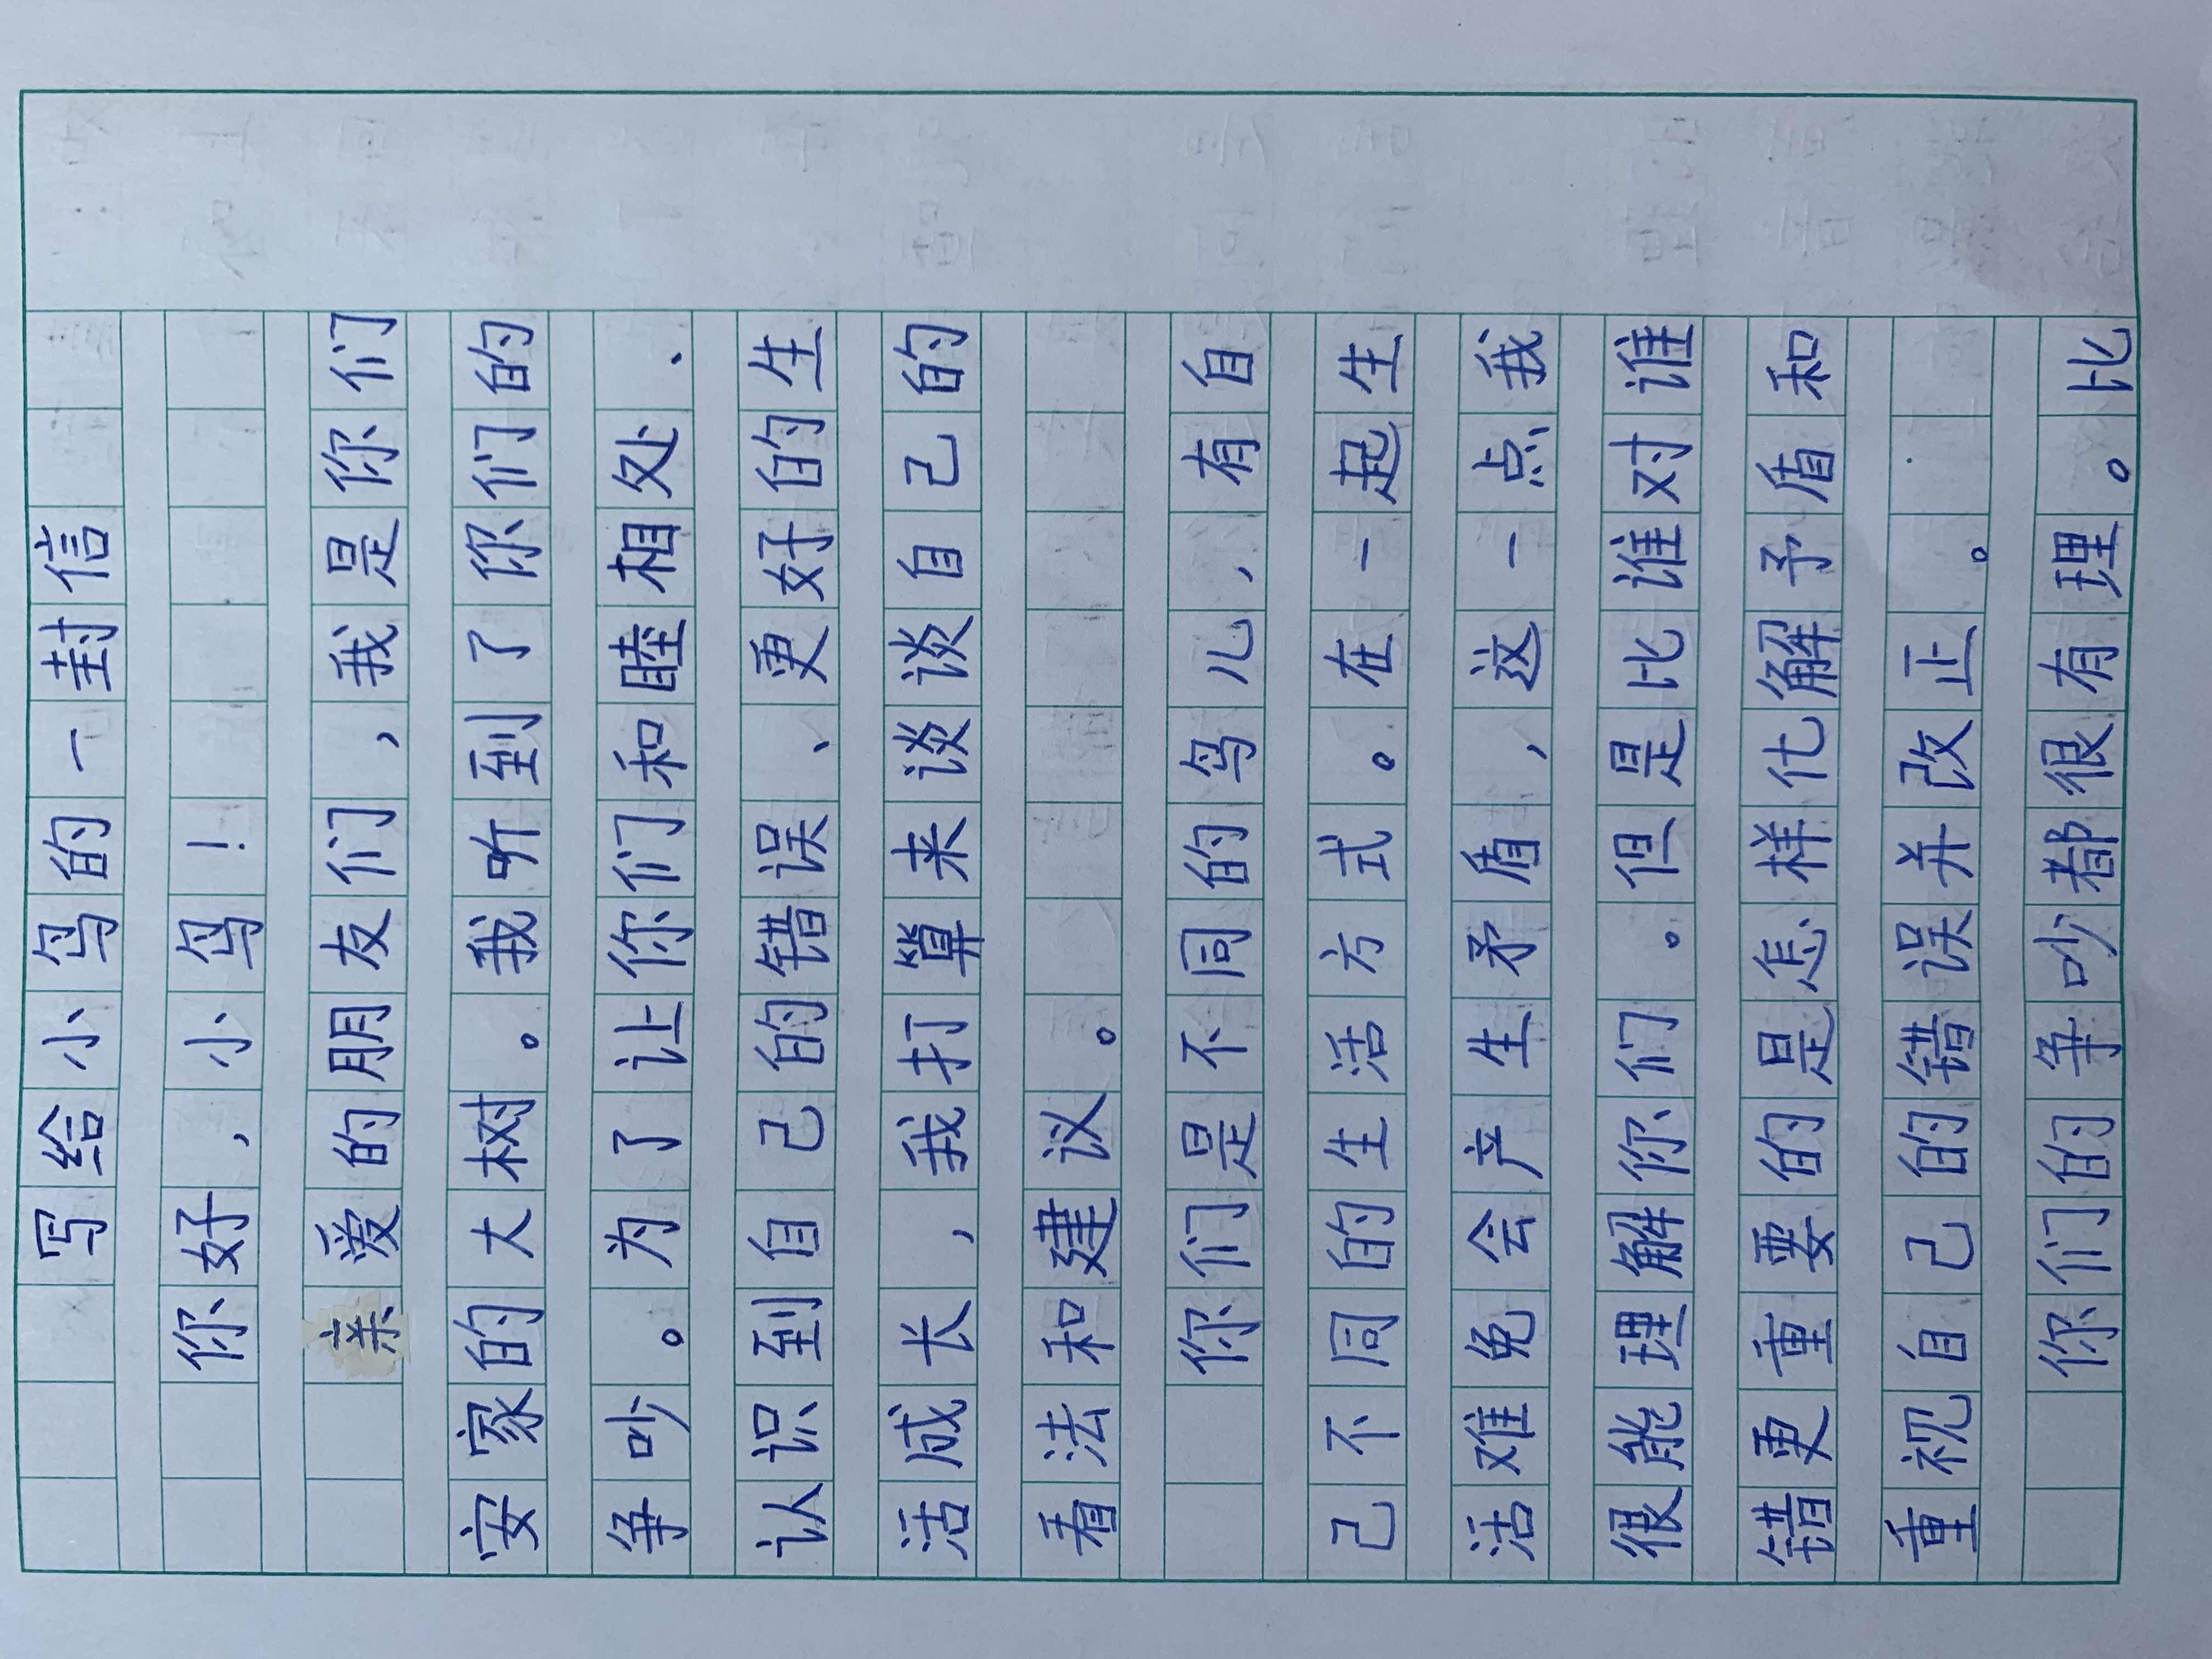 写给小鸟的一封信
你好，小鸟！
亲爱的朋友们，我是你们
安家的大树。我听到了你们的
争吵。为了让你们和睦相处、
认识到自己的错误、更好的生
活成长，我打算来谈谈自己的
看法和建议。
你们是不同的鸟儿，有自
己不同的生活方式。在一起生
活难免会产生矛盾，这一点我
很能理解你们。但是比谁对谁
错更重要的是怎样化解予盾和
重视自己的错误并改正。
你们的争吵都很有理。比